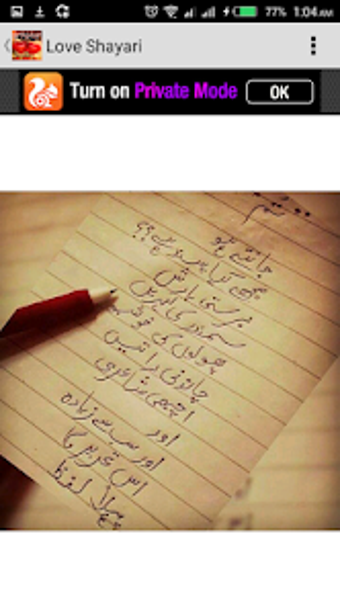 77% 1:04AM
Love Shayari
Turn on Private Mode
OK
جانتے ہو
مجھے کیا پسند ہے؟؟
برستی بارش
سمندر کی لہریں
پھولوں کی خوشبو
چاندنی راتیں
اچھی شاعری
اور
اور سب سے زیادہ
اس تحریر کا
پہلا لفظ